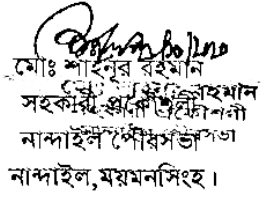 মোঃ শাহিনুর রহমান
সহকারী প্রকৌশলী
নান্দাইল পৌরসভা
নান্দাইল,ময়মনসিংহ।